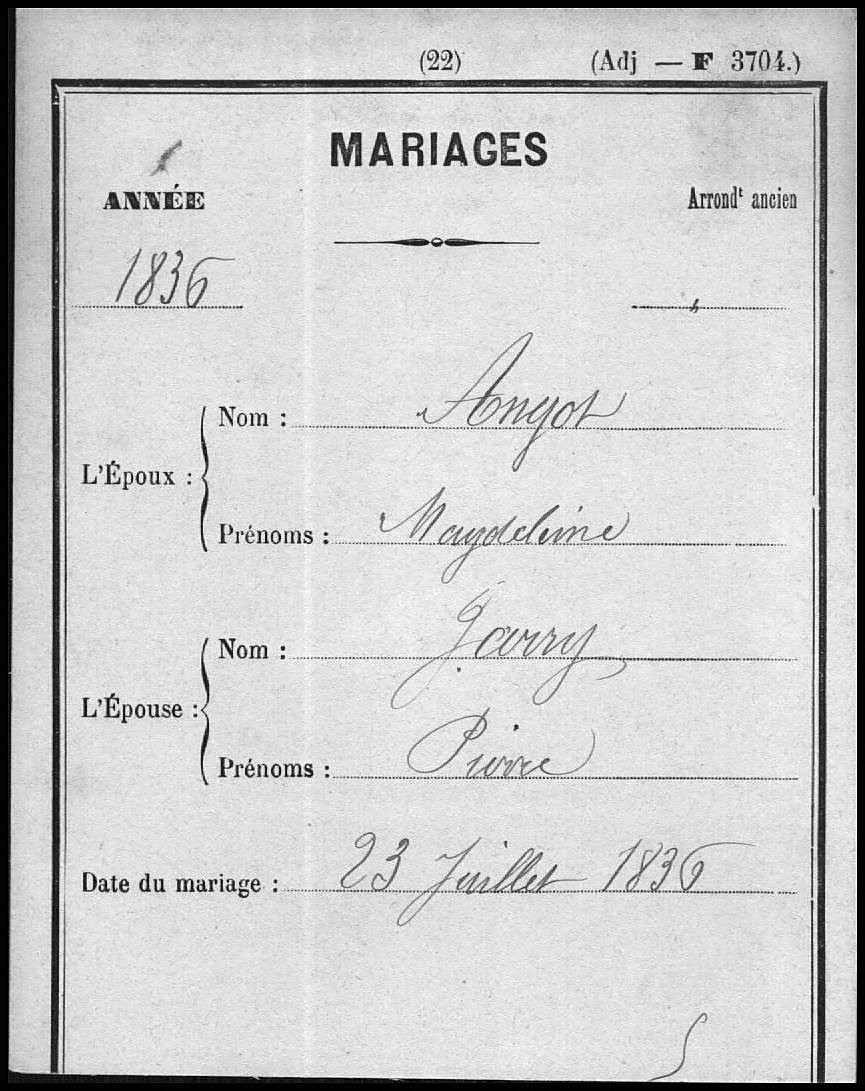 (22) (Adj — F 3704.)
MARIAGES
ANNÉE Arrondt ancien
1836 "
L'Époux :
Nom : Angot
Prénoms : Magdeleine
L'Épouse :
Nom : Garry
Prénoms : Pierre
Date du mariage : 23 Juillet 1836